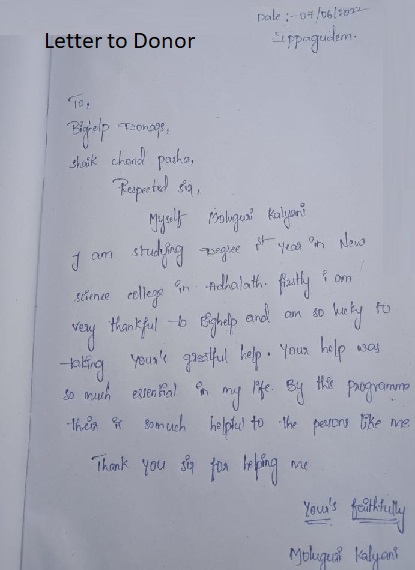 Date :- 07/06/2022
Ippagudem.
Letter to Donor
To,
Bighelp Donors,
shaik chand pasha,
Respected sir,
Myself Moluguri Kalyani
I am studying Degree 1st year in New
science college in firstly i am
very thankful to Bighelp and am so lucky to
taking Your's greatful help. Your help was
so much essential in my life. By this programme
their is somuch helpful to the persons like me.
Thank you sir for helping me
Your's faithfully
Moluguri Kalyani